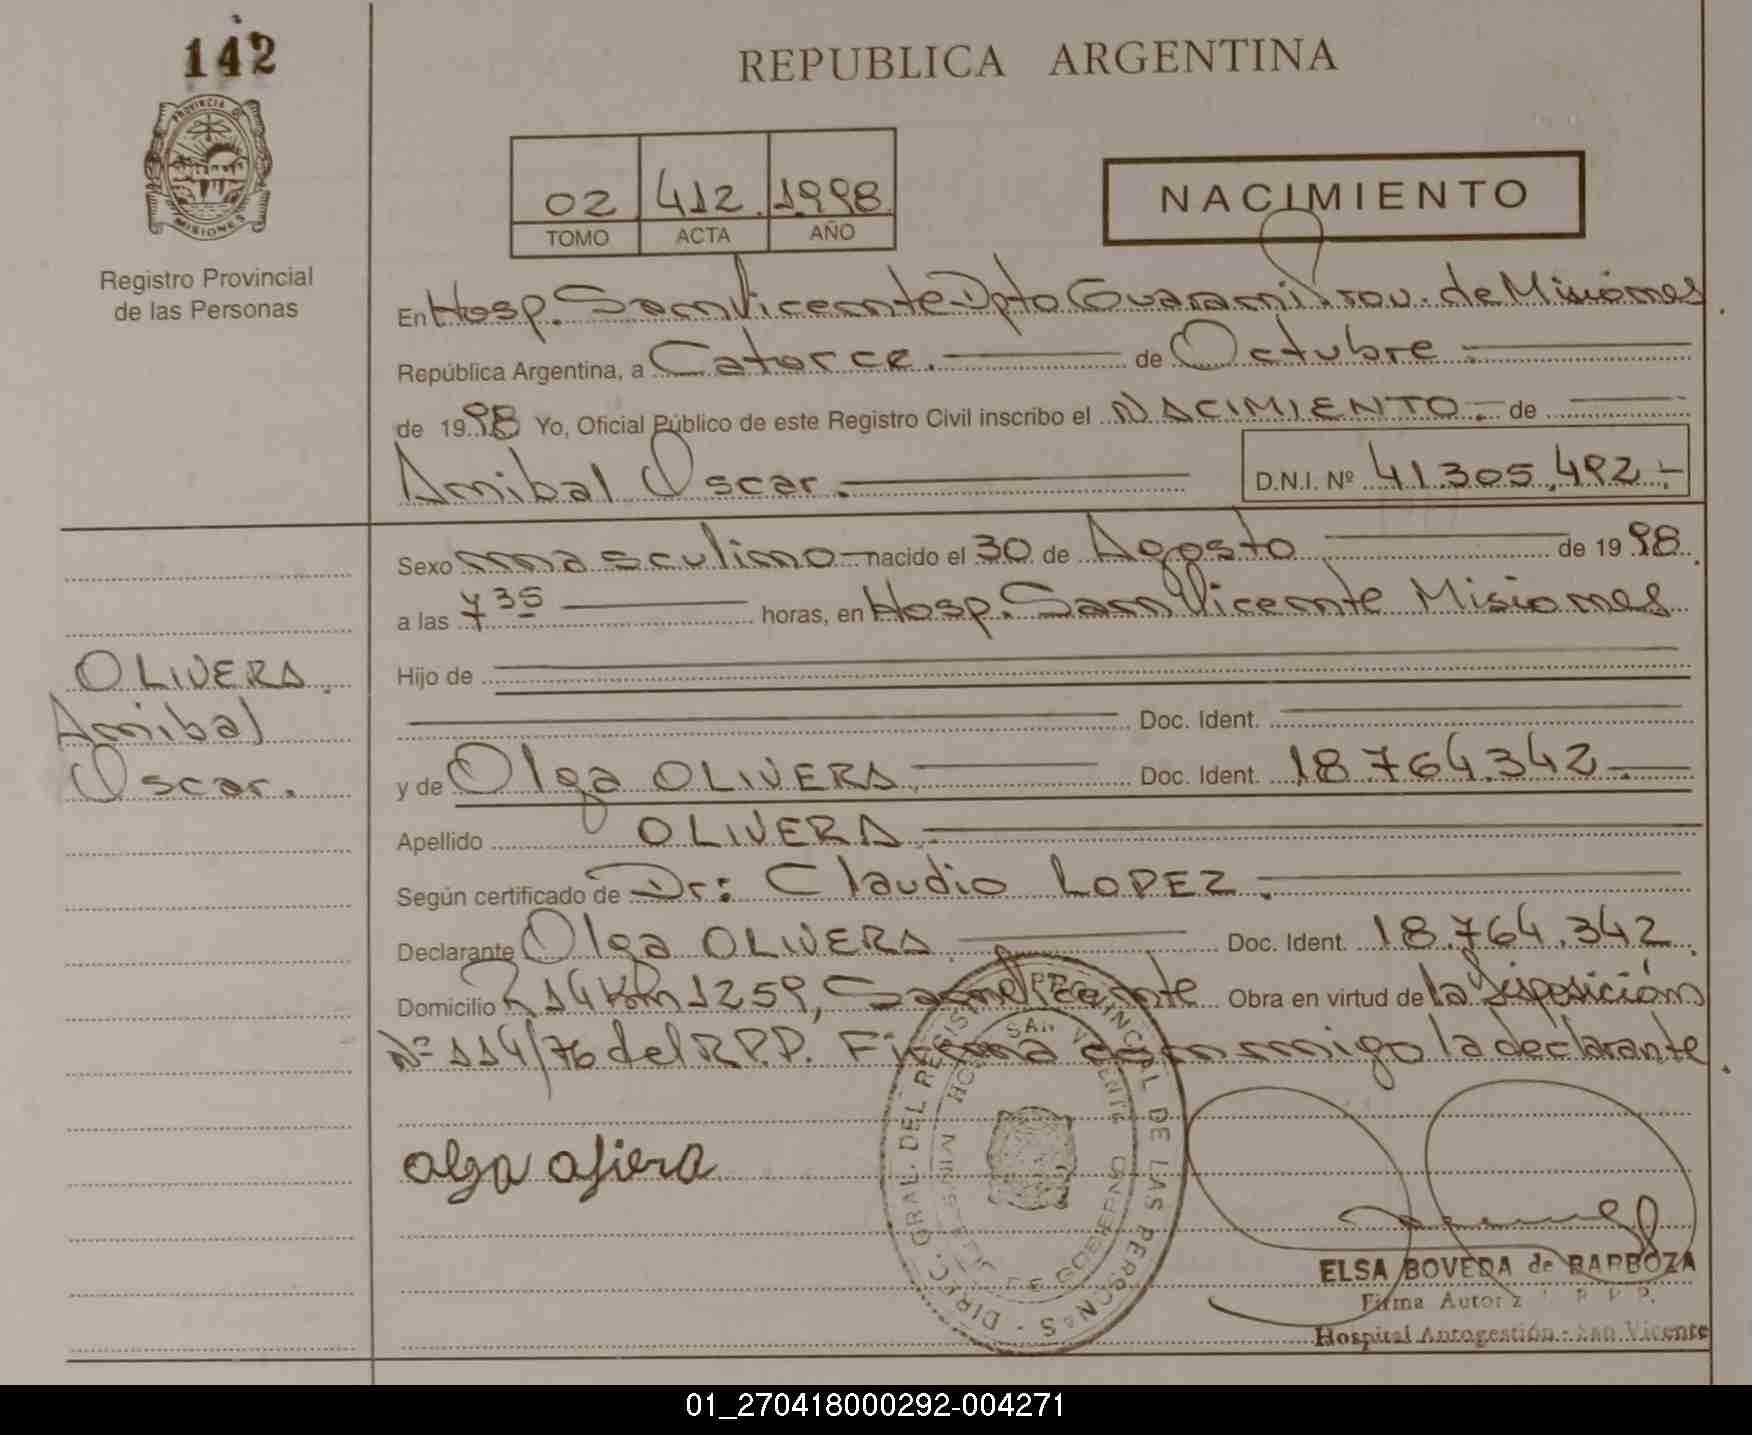 142
PROVINCIA DE
MISIONES
Registro Provincial
de las Personas
REPUBLICA ARGENTINA
02 412. 1998
TOMO ACTA AÑO
NACIMIENTO
En Hosp. San Vicente Dpto Guaraní Prov. de Misiones
República Argentina, a Catorce. de Octubre
de 1998 Yo, Oficial Público de este Registro Civil inscribo el NACIMIENTO.- de
Anibal Oscar. D.N.I. Nº 41.305.492.-
Sexo masculino nacido el 30 de Agosto de 1998.
a las 7 35 horas, en Hosp. San Vicente Misiones
Hijo de
Doc. Ident.
y de Olga OLIVERA Doc. Ident. 18.764.342.
Apellido OLIVERA
Según certificado de Dr: Claudio LOPEZ.
Declarante Olga OLIVERA Doc. Ident. 18.764.342
Domicilio R 14 Km 1259, San Vicente Obra en virtud de la Disposición
Nº 114/76 del R.P.P. Firma conmigo la declarante.
OLIVERA
Anibal
Oscar.
olga ofiera
DIREC. GRAL. DEL REGISTRO PROVINCIAL DE LAS PERSONAS
SAN VICENTE
ELSA BOVEDA de BARBOZA
Firma
Hospital Autogestión - San Vicente
01_270418000292-004271